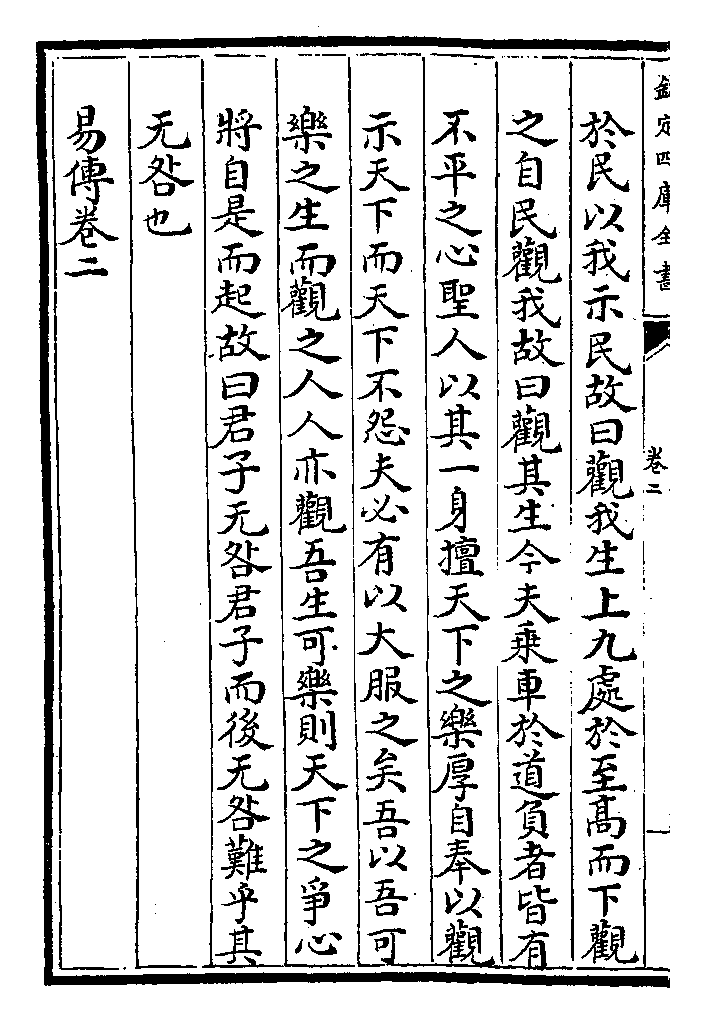 欽定四庫全書
卷二
於民以我示民故曰觀我生上九處於至髙而下觀
之自民觀我故曰觀其生今夫乘車於道負者皆有
不平之心聖人以其一身擅天下之樂厚自奉以觀
示天下而天下不怨夫必有以大服之矣吾以吾可
樂之生而觀之人人亦觀吾生可樂則天下之爭心
將自是而起故曰君子无咎君子而後无咎難乎其
无咎也
易傳卷二